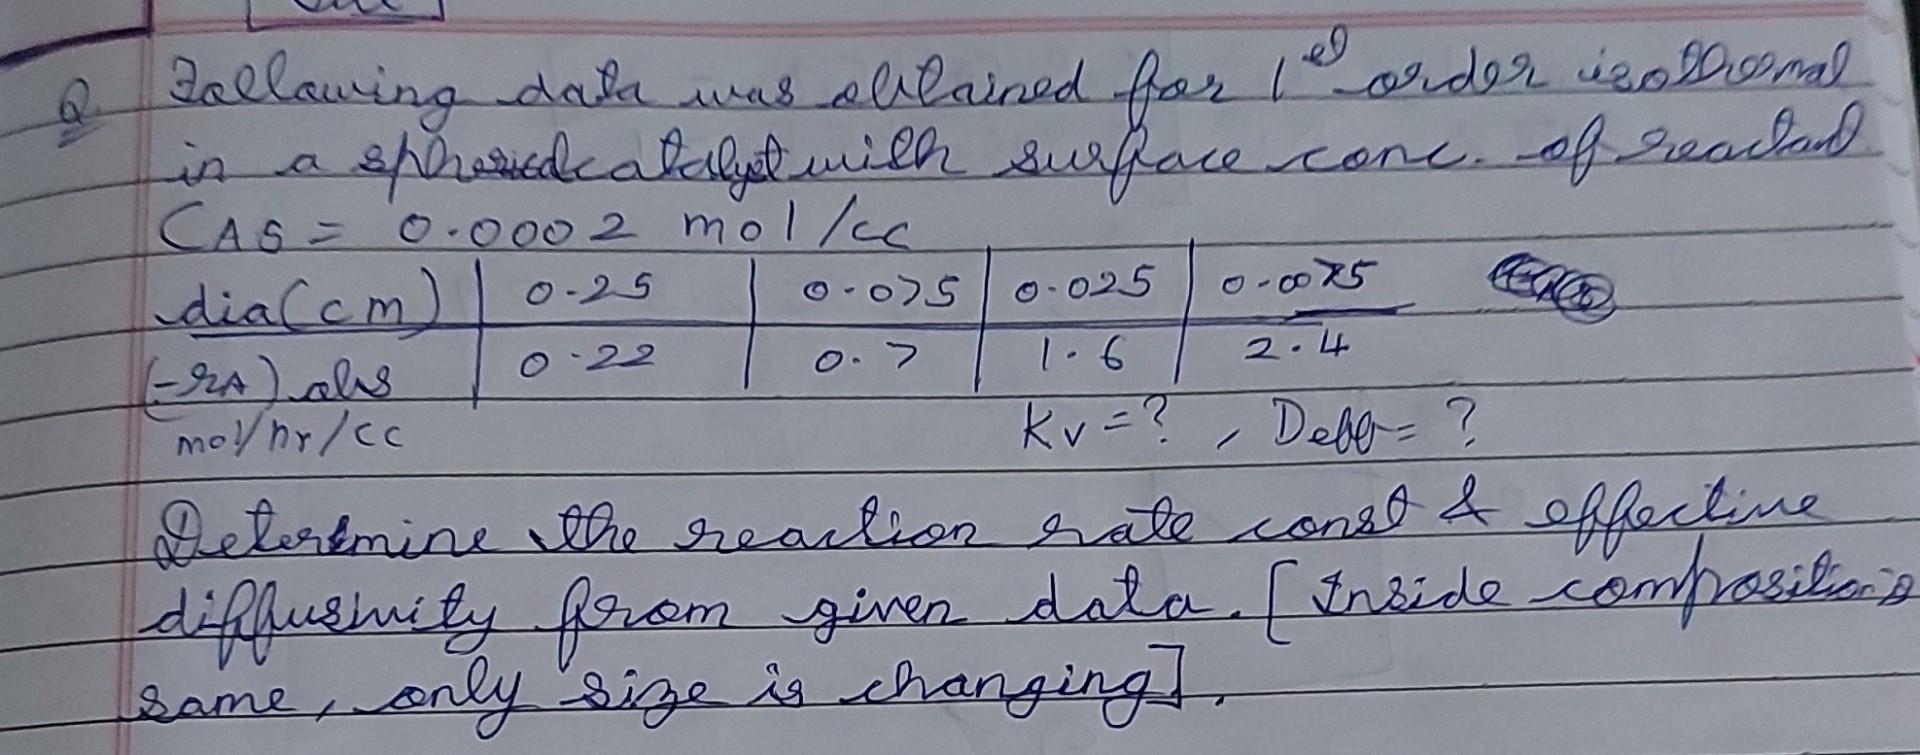 Q Following data was obtained for 1st order isothermal
in a spherical catalyst with surface conc. of reactant
CAS = 0.0002 mol/cc
dia(cm) 0.25 0.075 0.025 0.0075
(-rA) obs 0.22 0.7 1.6 2.4
mol/hr/cc Kv = ? , Deff = ?
Determine the reaction rate const & effective
diffusivity from given data. [Inside composition is
same, only size is changing].